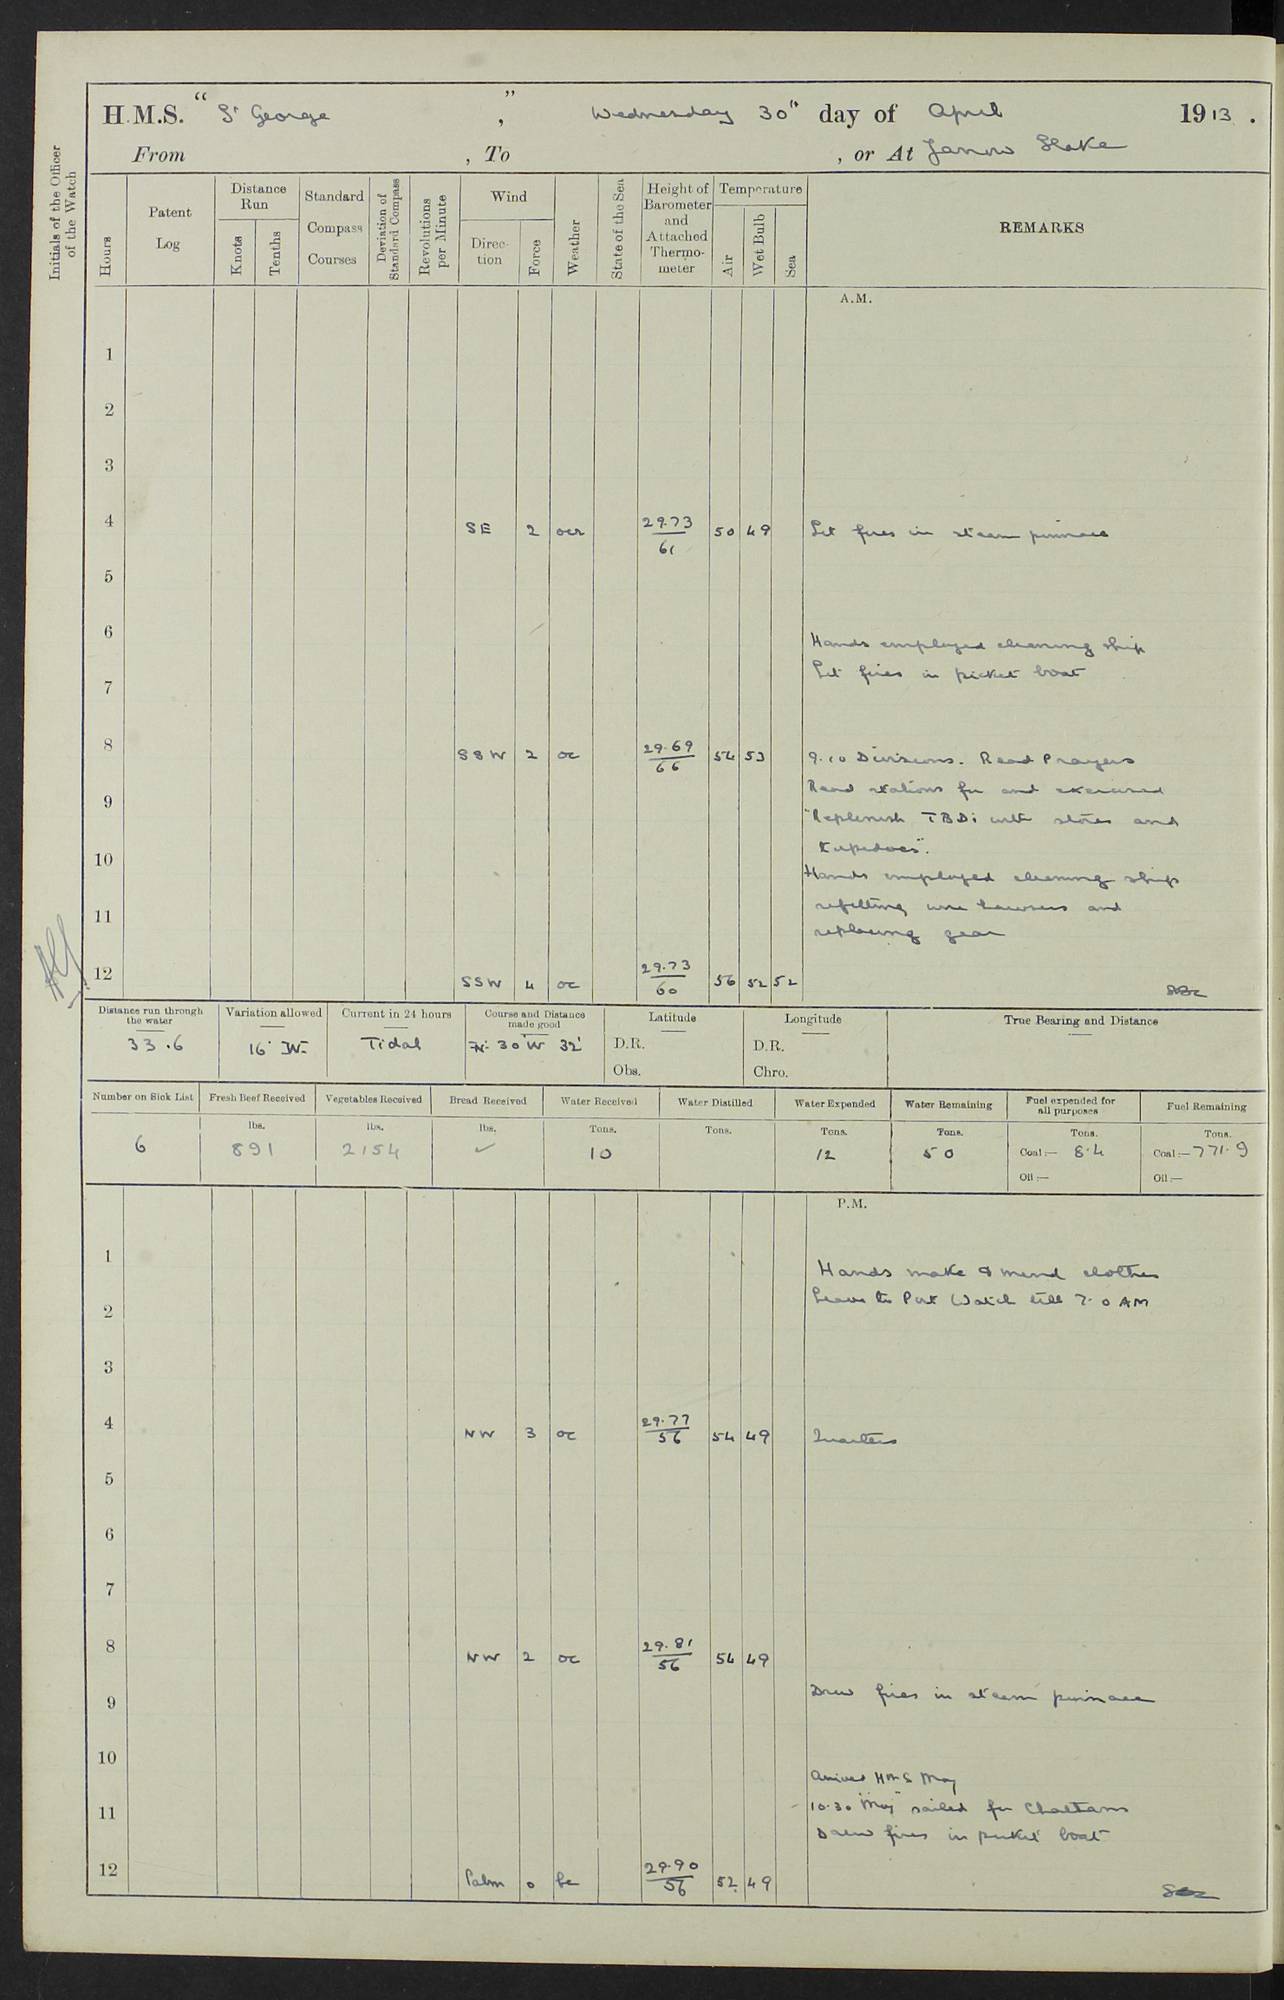 H.M.S. " St George ", Wednesday 30th day of April 1913.
From , To , or At Jarrow Slake
Initials of the Officer of the Watch
Hours
Patent Log
Distance Run
Knots
Tenths
Standard Compass Courses
Deviation of Standard Compass
Revolutions per Minute
Wind
Direc-tion
Force
Weather
State of the Sea
Height of Barometer and Attached Thermo-meter
Temperature
Air
Wet Bulb
Sea
REMARKS
A.M.
1
2
3
4 SE 2 ocr 29.73/61 50 49 Lit fires in steam pinnace
5
6
Hands employed cleaning ship
Lit fires in picket boat
7
8 SSW 2 oc 29.69/66 54 53 9.10 Divisions. Read Prayers
Read stations for and exercised
9
"Replenish TBDs with stores and
torpedoes".
10
Hands employed cleaning ship
refitting wire hawsers and
11
replacing gear
12 SSW 4 oc 29.73/60 56 52 52
Distance run through the water
33.6
Variation allowed
16° W.
Current in 24 hours
Tidal
Course and Distance made good
N. 30 W 32'
Latitude
D.R.
Obs.
Longitude
D.R.
Chro.
True Bearing and Distance
Number on Sick List
6
Fresh Beef Received
lbs.
891
Vegetables Received
lbs.
2154
Bread Received
lbs.
✓
Water Received
Tons.
10
Water Distilled
Tons.
Water Expended
Tons.
12
Water Remaining
Tons.
50
Fuel expended for all purposes
Tons.
Coal:— 8.4
Oil:—
Fuel Remaining
Tons.
Coal:— 771.9
Oil:—
P.M.
1
Hands make & mend clothes
Leave to Port Watch till 7.0 AM
2
3
4 NW 3 oc 29.77/56 54 49 Quarters
5
6
7
8 NW 2 oc 29.81/56 54 49
Drew fires in steam pinnace
9
10
Arrived HMS May
11 10.30 "May" sailed for Chatham
Drew fires in picket boat
12 Calm 0 bc 29.90/56 52 49